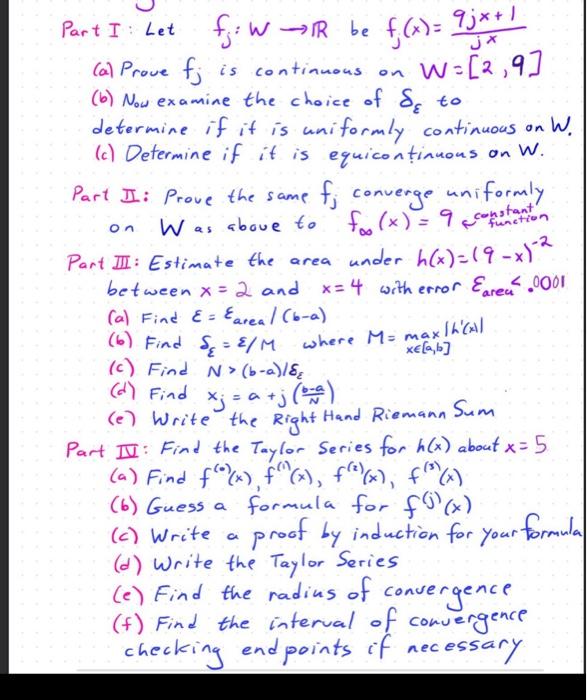 Part I: Let f_j: W → ℝ be f_j(x) = (9jx+1)/(jx)
(a) Prove f_j is continuous on W = [2,9]
(b) Now examine the choice of δ_ε to
determine if it is uniformly continuous on W.
(c) Determine if it is equicontinuous on W.
Part II: Prove the same f_j converge uniformly
on W as above to f_∞(x) = 9 ← constant function
Part III: Estimate the area under h(x) = (9-x)^-2
between x = 2 and x = 4 with error ε_area < .0001
(a) Find ε = ε_area / (b-a)
(b) Find δ_ε = ε/M where M = max |h'(x)| x∈[a,b]
(c) Find N > (b-a)/δ_ε
(d) Find x_j = a + j((b-a)/N)
(e) Write the Right Hand Riemann Sum
Part IV: Find the Taylor Series for h(x) about x = 5
(a) Find f^(0)(x), f^(1)(x), f^(2)(x), f^(3)(x)
(b) Guess a formula for f^(j)(x)
(c) Write a proof by induction for your formula
(d) Write the Taylor Series
(e) Find the radius of convergence
(f) Find the interval of convergence
checking endpoints if necessary